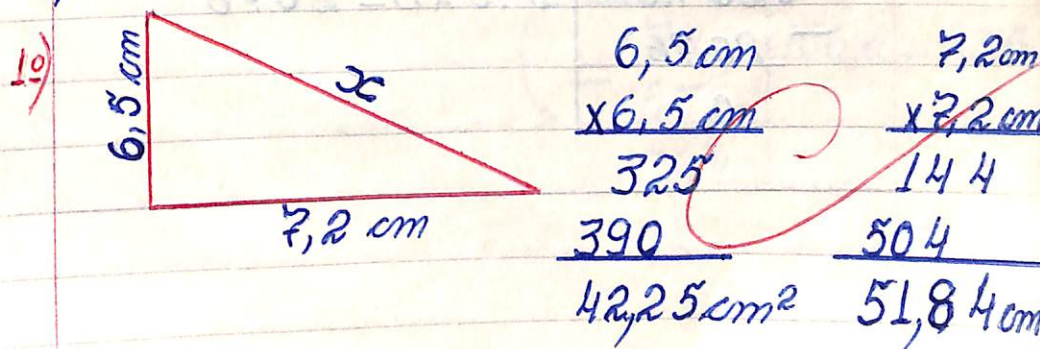 1º)
6,5 cm
x
7,2 cm
6,5 cm
x6,5 cm
325
390
42,25 cm²
7,2 cm
x7,2 cm
144
504
51,84 cm